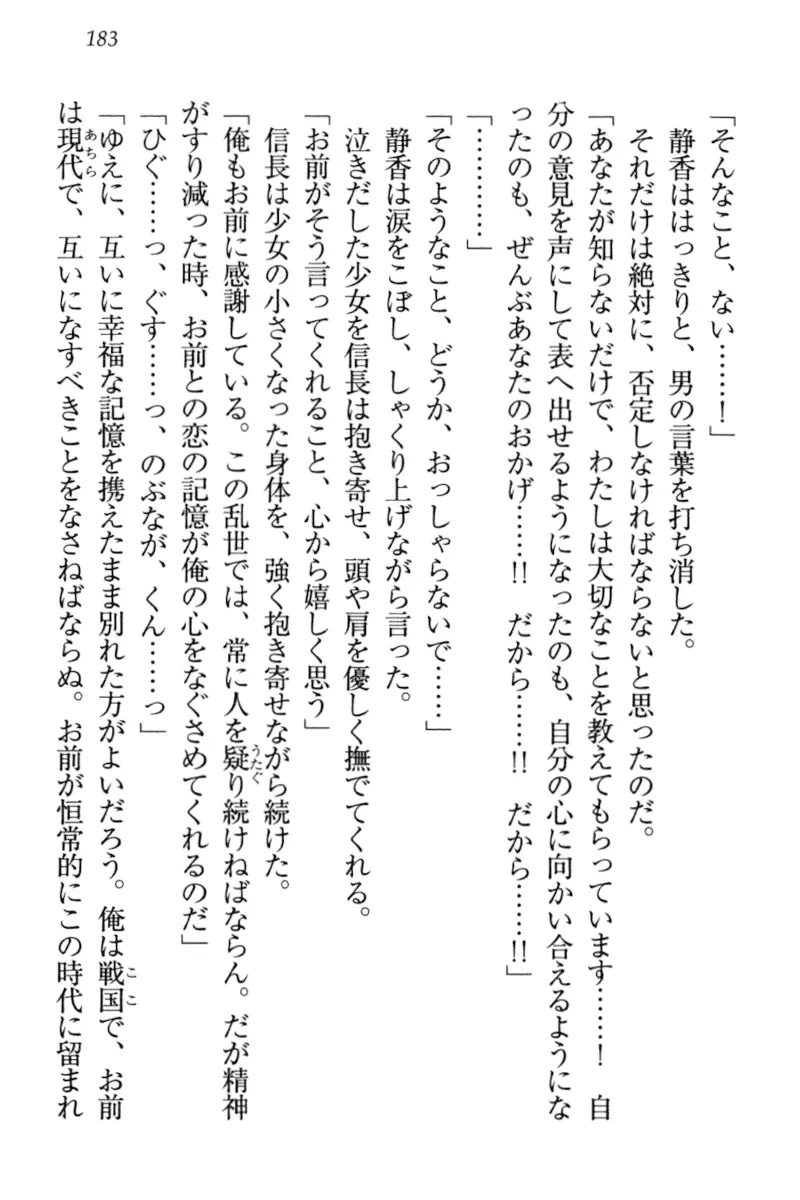 183
「そんなこと、ない……！」
　静香ははっきりと、男の言葉を打ち消した。
　それだけは絶対に、否定しなければならないと思ったのだ。
「あなたが知らないだけで、わたしは大切なことを教えてもらっています……！　自
分の意見を声にして表へ出せるようになったのも、自分の心に向かい合えるようにな
ったのも、ぜんぶあなたのおかげ……!!　だから……!!　だから……!!」
「…………」
「そのようなこと、どうか、おっしゃらないで……」
　静香は涙をこぼし、しゃくり上げながら言った。
　泣きだした少女を信長は抱き寄せ、頭や肩を優しく撫でてくれる。
「お前がそう言ってくれること、心から嬉しく思う」
　信長は少女の小さくなった身体を、強く抱き寄せながら続けた。
「俺もお前に感謝している。この乱世では、常に人を疑り続けねばならん。だが精神
がすり減った時、お前との恋の記憶が俺の心をなぐさめてくれるのだ」
「ひぐ……っ、ぐす……っ、のぶなが、くん……っ」
「ゆえに、互いに幸福な記憶を携えたまま別れた方がよいだろう。俺は戦国で、お前
は現代で、互いになすべきことをなさねばならぬ。お前が恒常的にこの時代に留まれ
うたぐ
ここ
あちら